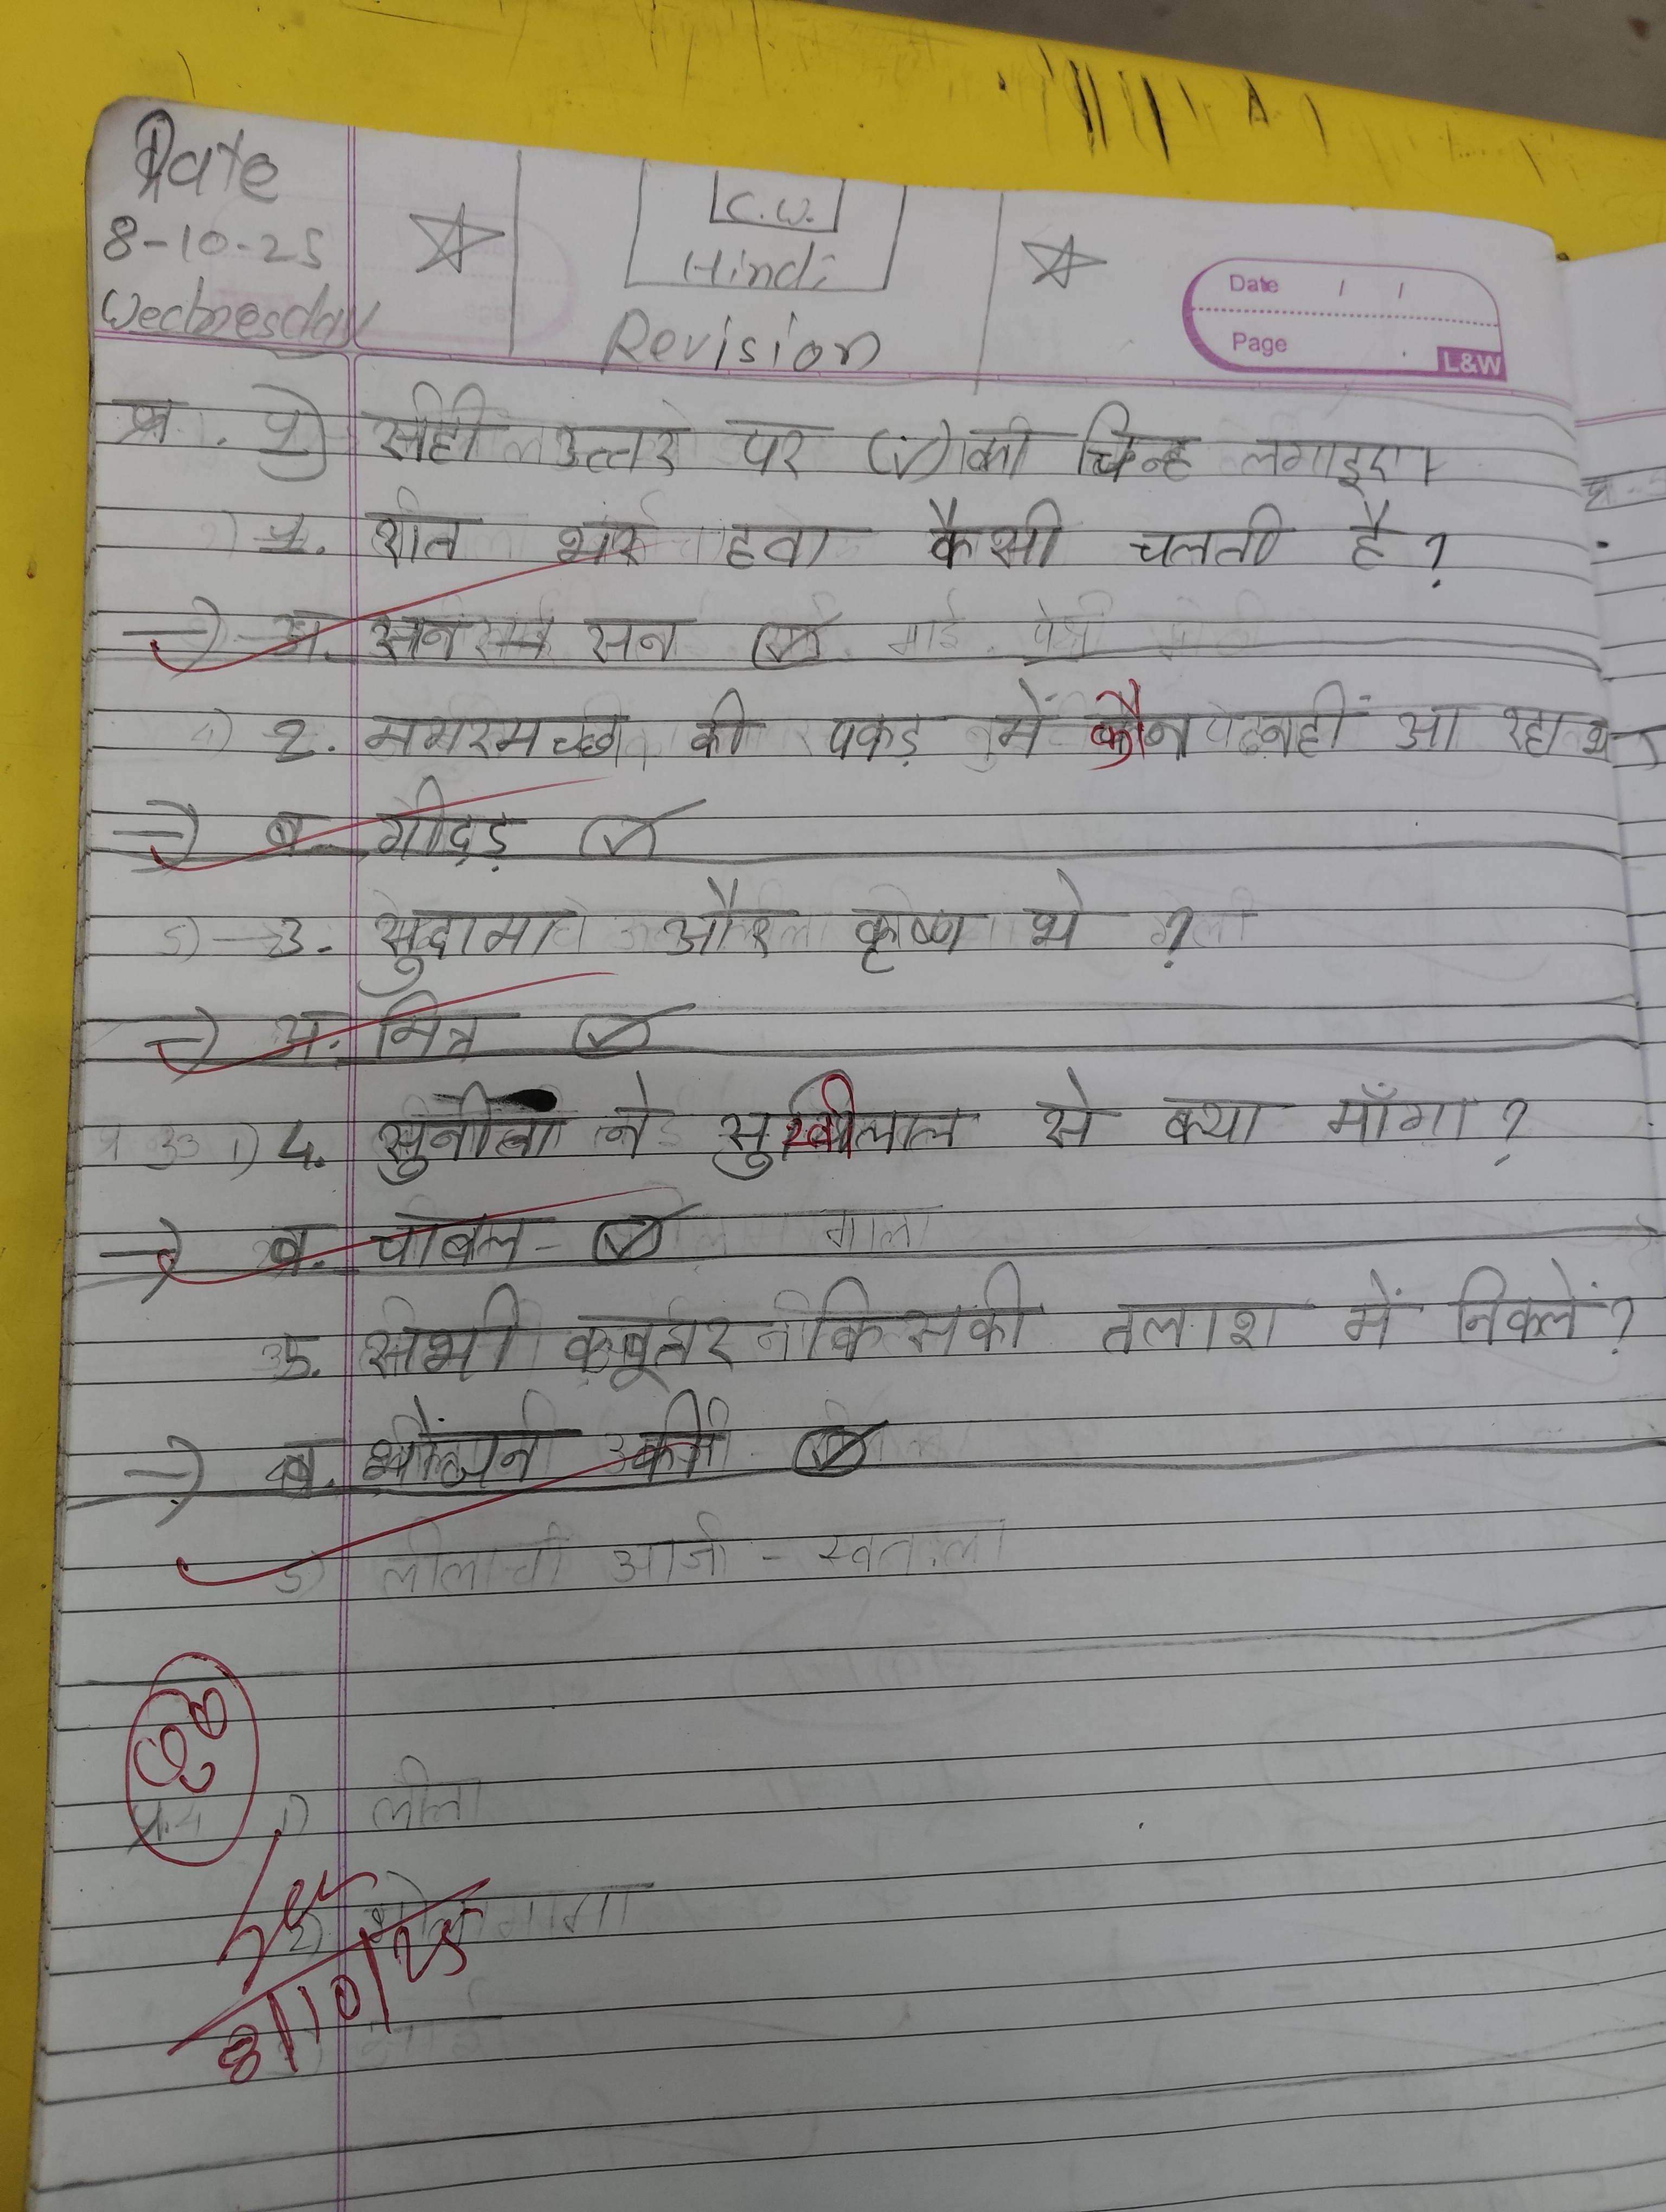 Date
8-10-25
Wednesday
C.W.
Hindi
Revision
Date / /
Page
L&W
प्र. 2) सही उत्तर पर (✓) का चिन्ह लगाइए।
1. रात भर हवा कैसी चलती है?
→ अ. सन सन सन ✓
2. मगरमच्छ की पकड़ में कौन नहीं आ रहा था
→ ब. गीदड़ ✓
3. सुदामा और कृष्ण थे ?
→ अ. मित्र ✓
4. ने सुखीलाल से क्या माँगा ?
→ ब. चावल ✓
5. सभी कबूतर किसकी तलाश में निकले ?
→ ब. की ✓
5) आजी -
प्र.4 1) लीला
2)
8/10/25